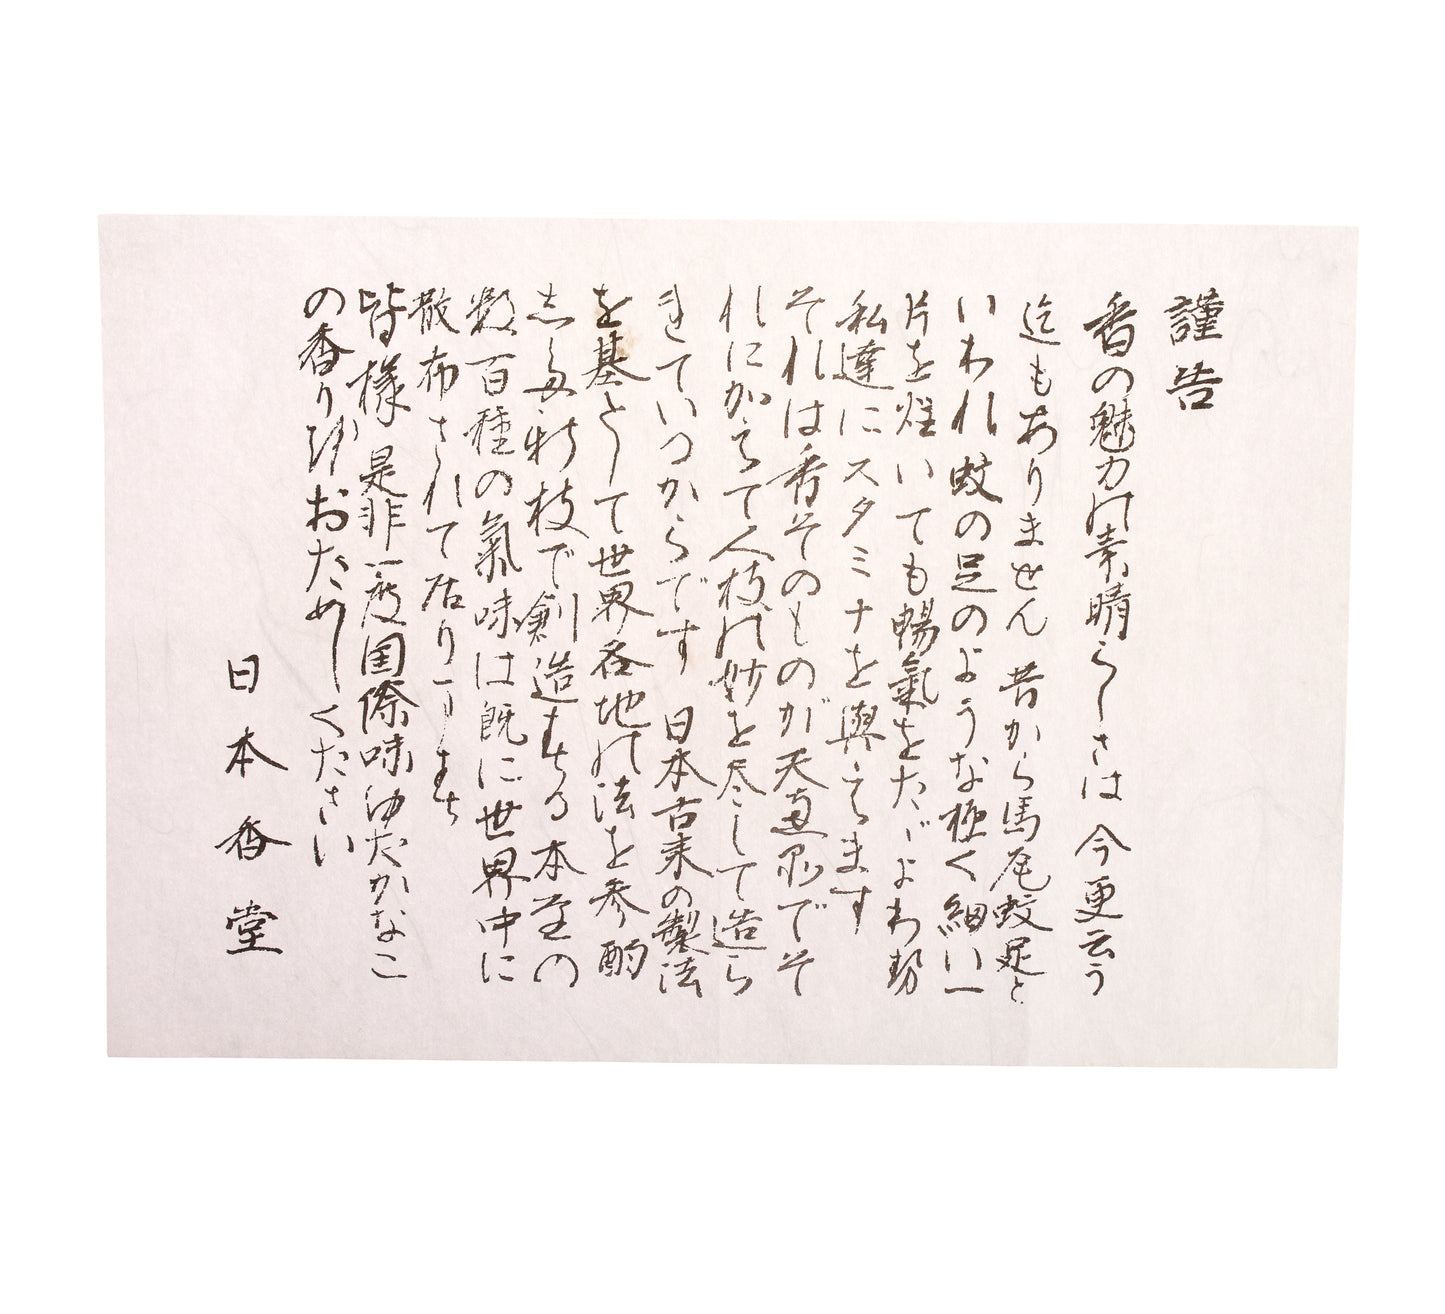 謹告
香の魅力の素晴らしさは今更云う
迄もありません 昔から馬尾蚊足と
いわれ蚊の足のような極く細い一
片を炷いても暢氣をたゞよわ勢
私達にスタミナを與えます
それは香そのものが天与でそ
れにかえて人技の妙を尽して造ら
れていつからです 日本古来の製法
を基として世界各地の法を参酌
し新技で創造する本堂の
数百種の氣味は既に世界中に
散布されて居ります
皆様是非一度国際味ゆたかなこ
の香りおためしください
日本香堂